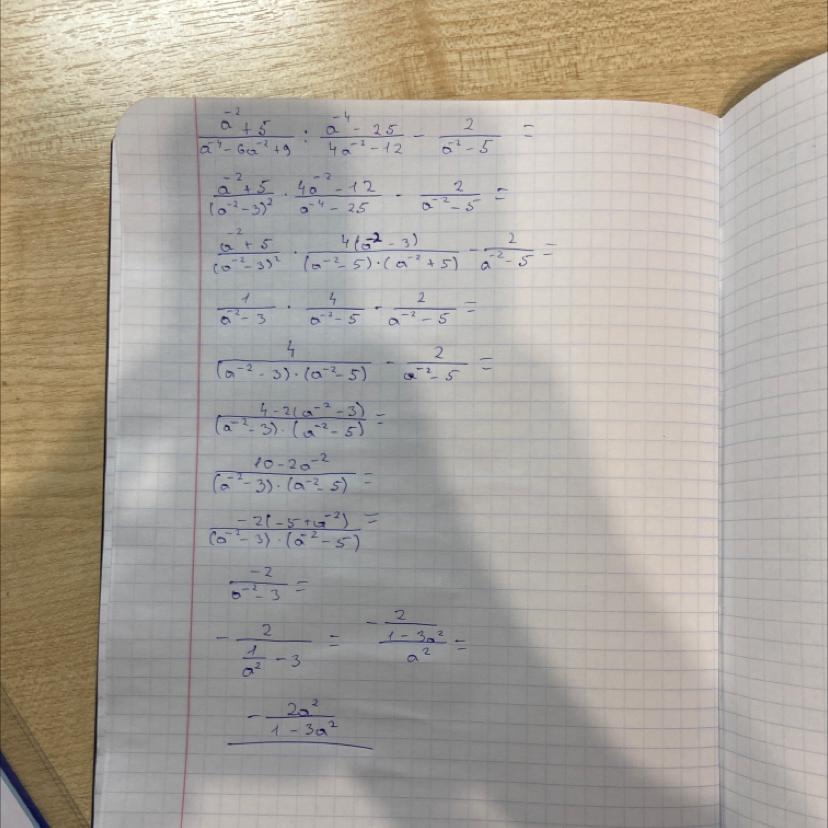 (a⁻²+5)/(a⁻⁴-6a⁻²+9) : (a⁻⁴-25)/(4a⁻²-12) - 2/(a⁻²-5) =
(a⁻²+5)/(a⁻²-3)² · (4a⁻²-12)/(a⁻⁴-25) - 2/(a⁻²-5) =
(a⁻²+5)/(a⁻²-3)² · 4(a⁻²-3)/((a⁻²-5)·(a⁻²+5)) - 2/(a⁻²-5) =
1/(a⁻²-3) · 4/(a⁻²-5) - 2/(a⁻²-5) =
4/((a⁻²-3)·(a⁻²-5)) - 2/(a⁻²-5) =
(4-2(a⁻²-3))/((a⁻²-3)·(a⁻²-5)) =
(10-2a⁻²)/((a⁻²-3)·(a⁻²-5)) =
-2(-5+a⁻²)/((a⁻²-3)·(a⁻²-5)) =
-2/(a⁻²-3) =
-2/(1/a²-3) = -2/((1-3a²)/a²) =
-2a²/(1-3a²)